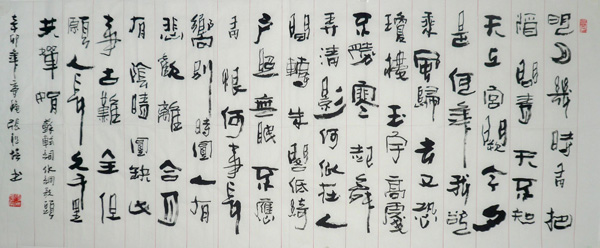 明月幾時有把
酒問青天不知
天上宮闕今夕
是何年我欲
乘風歸去又恐
瓊樓玉宇高處
不勝寒起舞
弄清影何似在人
間轉朱閣低綺
户照無眠不應
有恨何事長
嚮別時圓人有
悲歡離合月
有陰晴圓缺此
事古難全但
願人長久千里
共嬋娟 蘇軾詞水調歌頭
辛卯年 張 書